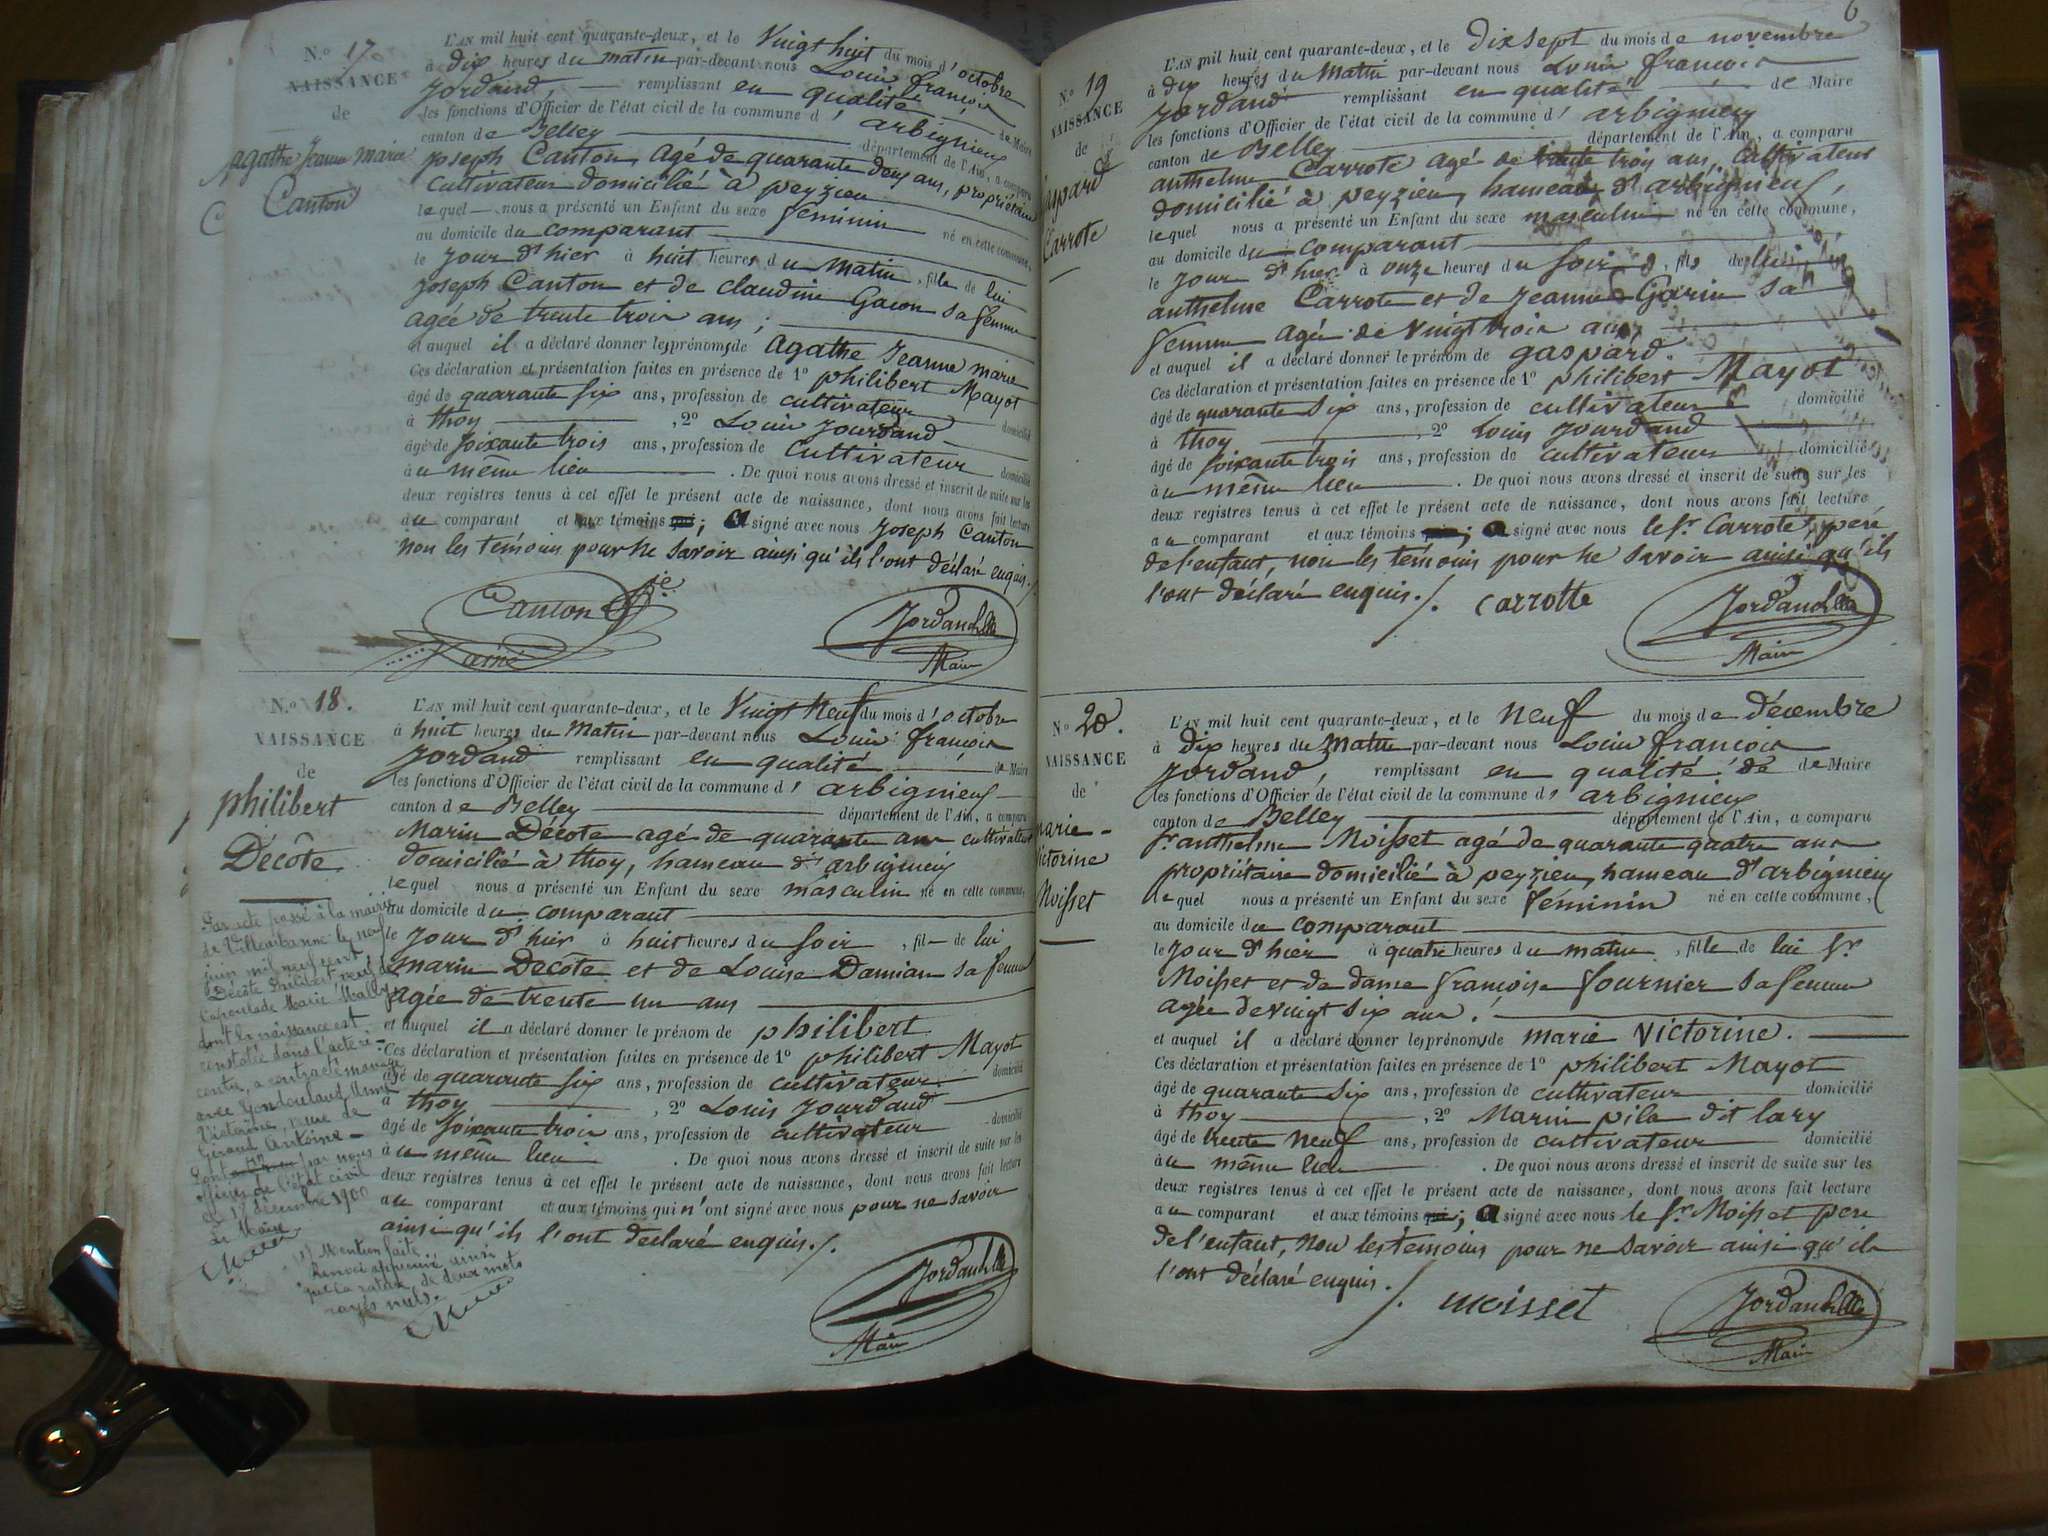 N.o 17
NAISSANCE
de
Agathe Jeanne Marie
Canton
L'AN mil huit cent quarante-deux, et le Vingt huit du mois d'octobre
à dix heures du matin par-devant nous Louis françois
Jordand, remplissant en qualité de Maire
les fonctions d'Officier de l'état civil de la commune d'arbignieu
canton de Belley département de l'Ain, a comparu
Joseph Canton, agé de quarante deux ans, propriétaire
cultivateur domicilié à peyzieu
lequel nous a présenté un Enfant du sexe féminin né en cette commune,
au domicile du comparant
le jour d'hier à huit heures du matin, fille de lui
Joseph Canton et de claudine Gacon sa femme
agée de trente trois ans;
et auquel il a déclaré donner les prénoms de agathe Jeanne marie
Ces déclaration et présentation faites en présence de 1o philibert Mayot
âgé de quarante six ans, profession de cultivateur domicilié
à thoy, 2o Louis Jourdand
âgé de soixante trois ans, profession de cultivateur domicilié
au même lieu. De quoi nous avons dressé et inscrit de suite sur les
deux registres tenus à cet effet le présent acte de naissance, dont nous avons fait lecture
au comparant et aux témoins qui; a signé avec nous Joseph Canton
non les témoins pour ne savoir ainsi qu'ils l'ont déclaré enquis./.
Canton Jie
ainé
Jordand
Maire
N.o 18.
NAISSANCE
de
philibert
Décôte
Par acte passé à la mairie
de Villeurbanne le neuf
juin mil neuf cent
Décôte Philibert veuf de
Marie
dont la naissance est
constatée dans l'acte ci-
contre, a contracté mariage
avec
Victorine, veuve de
Giraud Antoine
par nous
officier de l'état civil
le 17 décembre 1900
Le Maire
(1) Mention faite
Renvoi approuvé ainsi
que la rature de deux mots
rayés nuls.
L'AN mil huit cent quarante-deux, et le Vingt neuf du mois d'octobre
à huit heures du Matin par-devant nous Louis françois
Jordand remplissant en qualité de Maire
les fonctions d'Officier de l'état civil de la commune d'arbignieu
canton de Belley département de l'Ain, a comparu
Marin Décote agé de quarante ans cultivateur
domicilié à thoy, hameau d'arbignieu
lequel nous a présenté un Enfant du sexe masculin né en cette commune,
au domicile du comparant
le jour d'hier à huit heures du soir, fils de lui
marin Decôte et de Louise Damian sa femme
agée de trente un ans
et auquel il a déclaré donner le prénom de philibert
Ces déclaration et présentation faites en présence de 1o philibert Mayot
âgé de quarante six ans, profession de cultivateur domicilié
à thoy, 2o Louis Jourdand
âgé de soixante trois ans, profession de cultivateur domicilié
au même lieu. De quoi nous avons dressé et inscrit de suite sur les
deux registres tenus à cet effet le présent acte de naissance, dont nous avons fait lecture
au comparant et aux témoins qui n'ont signé avec nous pour ne savoir
ainsi qu'ils l'ont déclaré enquis./.
Jordand
Maire
6
N.o 19
NAISSANCE
de
gaspard
Carrote
L'AN mil huit cent quarante-deux, et le dix sept du mois de novembre
à dix heures du Matin par-devant nous Louis françois
Jordand remplissant en qualité de Maire
les fonctions d'Officier de l'état civil de la commune d'arbignieu
canton de Belley département de l'Ain, a comparu
anthelme Carrote agé de trente trois ans, cultivateur
domicilié à peyzieu, hameau d'arbignieu,
lequel nous a présenté un Enfant du sexe masculin né en cette commune,
au domicile du comparant
le jour d'hier à onze heures du soir, fils de lui
anthelme Carrote et de Jeanne Garin sa
femme agée de vingt trois ans
et auquel il a déclaré donner le prénom de gaspard.
Ces déclaration et présentation faites en présence de 1o philibert Mayot
âgé de quarante six ans, profession de cultivateur domicilié
à thoy, 2o Louis Jourdand
âgé de soixante trois ans, profession de cultivateur domicilié
au même lieu. De quoi nous avons dressé et inscrit de suite sur les
deux registres tenus à cet effet le présent acte de naissance, dont nous avons fait lecture
au comparant et aux témoins qui; a signé avec nous le Sr Carrote, père
de l'enfant, non les témoins pour ne savoir ainsi qu'ils
l'ont déclaré enquis./. Carrotte
Jordand
Maire
No 20.
NAISSANCE
de
marie-
Victorine
Moisset
L'AN mil huit cent quarante-deux, et le neuf du mois de décembre
à dix heures du Matin par-devant nous Louis françois
Jordand, remplissant en qualité de de Maire
les fonctions d'Officier de l'état civil de la commune d'arbignieu
canton de Belley département de l'Ain, a comparu
Sr anthelme Moisset agé de quarante quatre ans
propriétaire domicilié à peyzieu, hameau d'arbignieu
lequel nous a présenté un Enfant du sexe féminin né en cette commune,
au domicile du comparant
le jour d'hier à quatre heures du matin, fille de lui Sr
Moisset et de dame françoise fournier sa femme
agée de vingt six ans.
et auquel il a déclaré donner les prénoms de marie Victorine.
Ces déclaration et présentation faites en présence de 1o philibert Mayot
âgé de quarante six ans, profession de cultivateur domicilié
à thoy, 2o Marin pila dit lary
âgé de trente neuf ans, profession de cultivateur domicilié
au même lieu. De quoi nous avons dressé et inscrit de suite sur les
deux registres tenus à cet effet le présent acte de naissance, dont nous avons fait lecture
au comparant et aux témoins qui; a signé avec nous le Sr Moisset père
de l'enfant, non les témoins pour ne savoir ainsi qu'ils
l'ont déclaré enquis./. moisset
Jordand
Maire